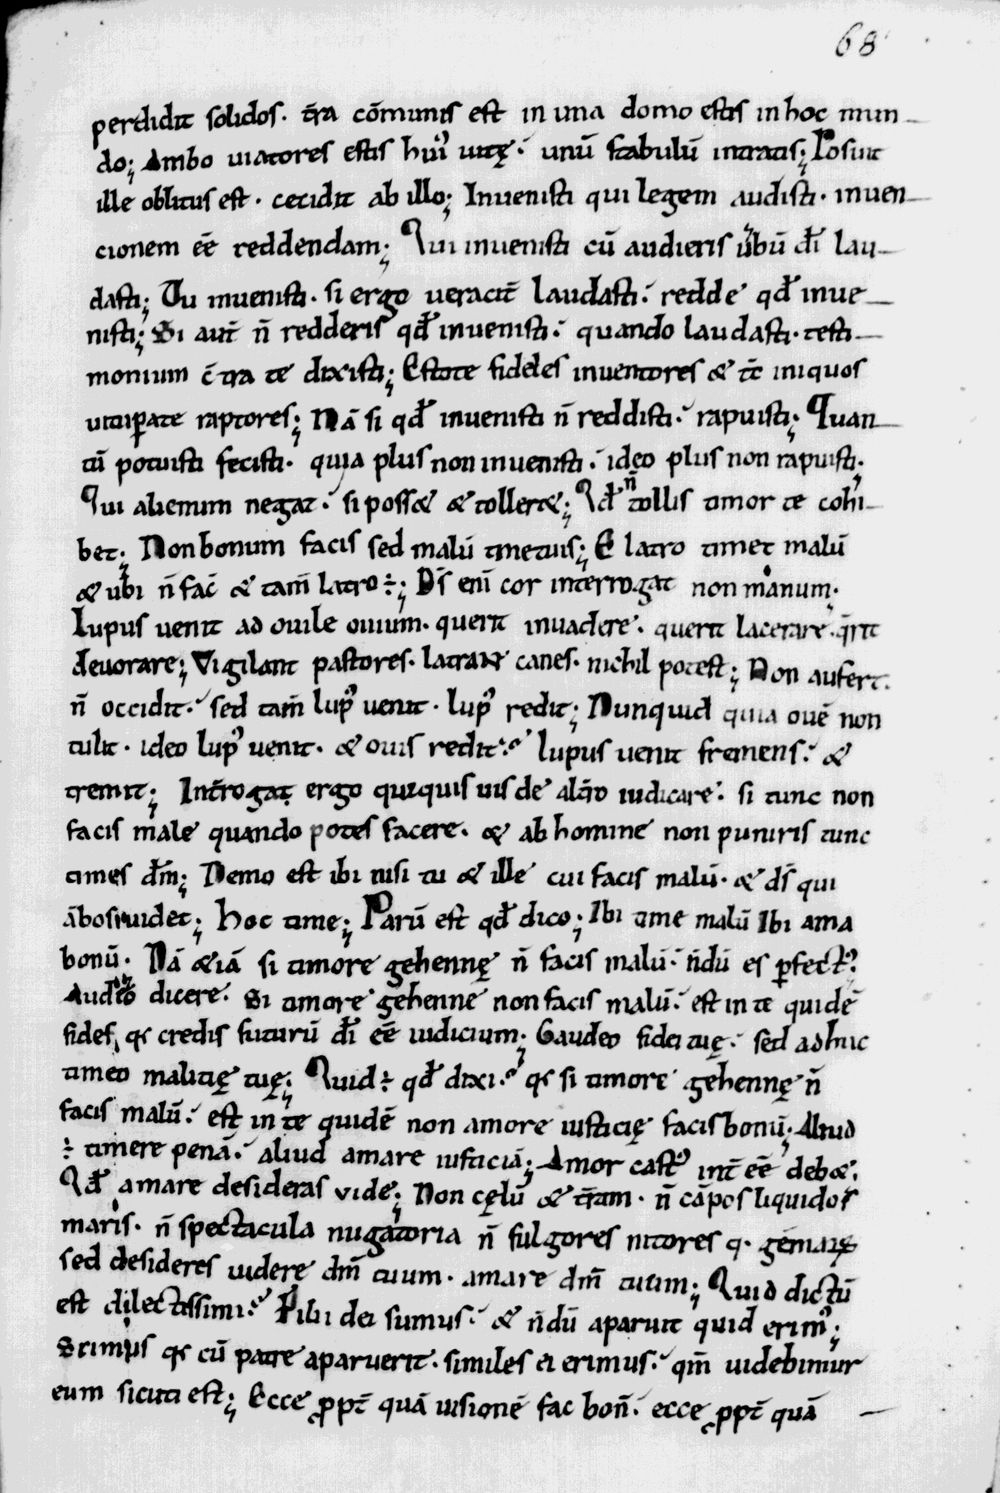 68
perdidit solidos. t̄ra cōmunis est in una domo estis in hoc mun
do; Ambo uiatores estis hui᷒ uitę. unū stabulū intratis; Posuit
ille oblitus est. cecidit ab illo; Inuenisti qui legem audisti. inuen
cionem eē reddendam; Qui inuenisti cū audieris ubū dī lau
dasti; Tu inuenisti. si ergo ueracit̄ laudasti. redde qđ inue
nisti; Si aut̄ n̄ redderis qđ inuenisti. quando laudasti. testi
monium c̄tra te dixisti; Estote fideles inuentores & tc̄ iniquos
uituꝑate raptores; Nā si qđ inuenisti n̄ reddisti. rapuisti; Quan
tū potuisti fecisti. quia plus non inuenisti. ideo plus non rapuisti.
Qui alienum negat. si poss& & toller&; Qđ n̄ tollis timor te cohi
bet; Non bonum facis sed malū timetuis; E latro timet malū
& ubi n̄ fac̄ & tam̄ latro ÷; Ds̄ eni cor interrogat non manum.
Lupus uenit ad ouile ouium. querit inuadere. querit lacerare. q̄rit
deuorare; Vigilant pastores. latrant canes. nichil potest; Non aufert.
n̄ occidit. sed tam̄ lup᷒ uenit. lup᷒ redit; Nunquid quia ouē non
tulit. ideo lup᷒ uenit. & ouis redit. lupus uenit fremens. &
tremit; Int̄rogat ergo quisquis uis de alt̄o iudicare. si tunc non
facis male quando potes facere. & ab homine non puniris tunc
times dm̄; Nemo est ibi nisi tu & ille cui facis malū. & ds̄ qui
ābos uidet; hoc time; Parū est qđ dico; Ibi time malū Ibi ama
bonū. Nā &iā si timore gehennę n̄ facis malū. n̄dū es ꝑfect᷒.
Audeo dicere. Si timore gehenne non facis malū. est in te quidē
fides, qꝛ credis futurū dī eē iudicium; Gaudeo fidei tuę. sed adhuc
timeo malitię tuę; Quid ÷ qđ dixi. qꝛ si timore gehennę n̄
facis malū. est in te quidē non amore iusticię facis bonū; Aliud
÷ timere penā. aliud amare iusticiā; Amor cast᷒ int̄ eē deb&.
Qđ amare desideras vide; Non cęlū & t̄ram. n̄ cāpos liquidos
maris. n̄ spectacula nugatoria n̄ fulgores nitores q. gēmarꝝ
sed desideres uidere dm̄ tuum. amare dm̄ tuum; Quid dictū
est dilectissimi. Filii dei sumus. & n̄dū aparuit quid erim᷒;
Scimus qꝛ cū patre aparuerit. similes ei erimus. qm̄ uidebimur
eum sicuti est; Ecce ꝓpt̄ quā uisionē fac bon̄. ecce ꝓpt̄ quā